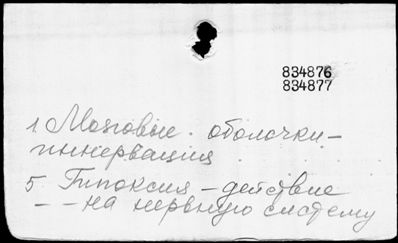 834876
834877
1 Мозговые оболочки -
иннервация
5. Гипоксия - действие
- - на нервную систему